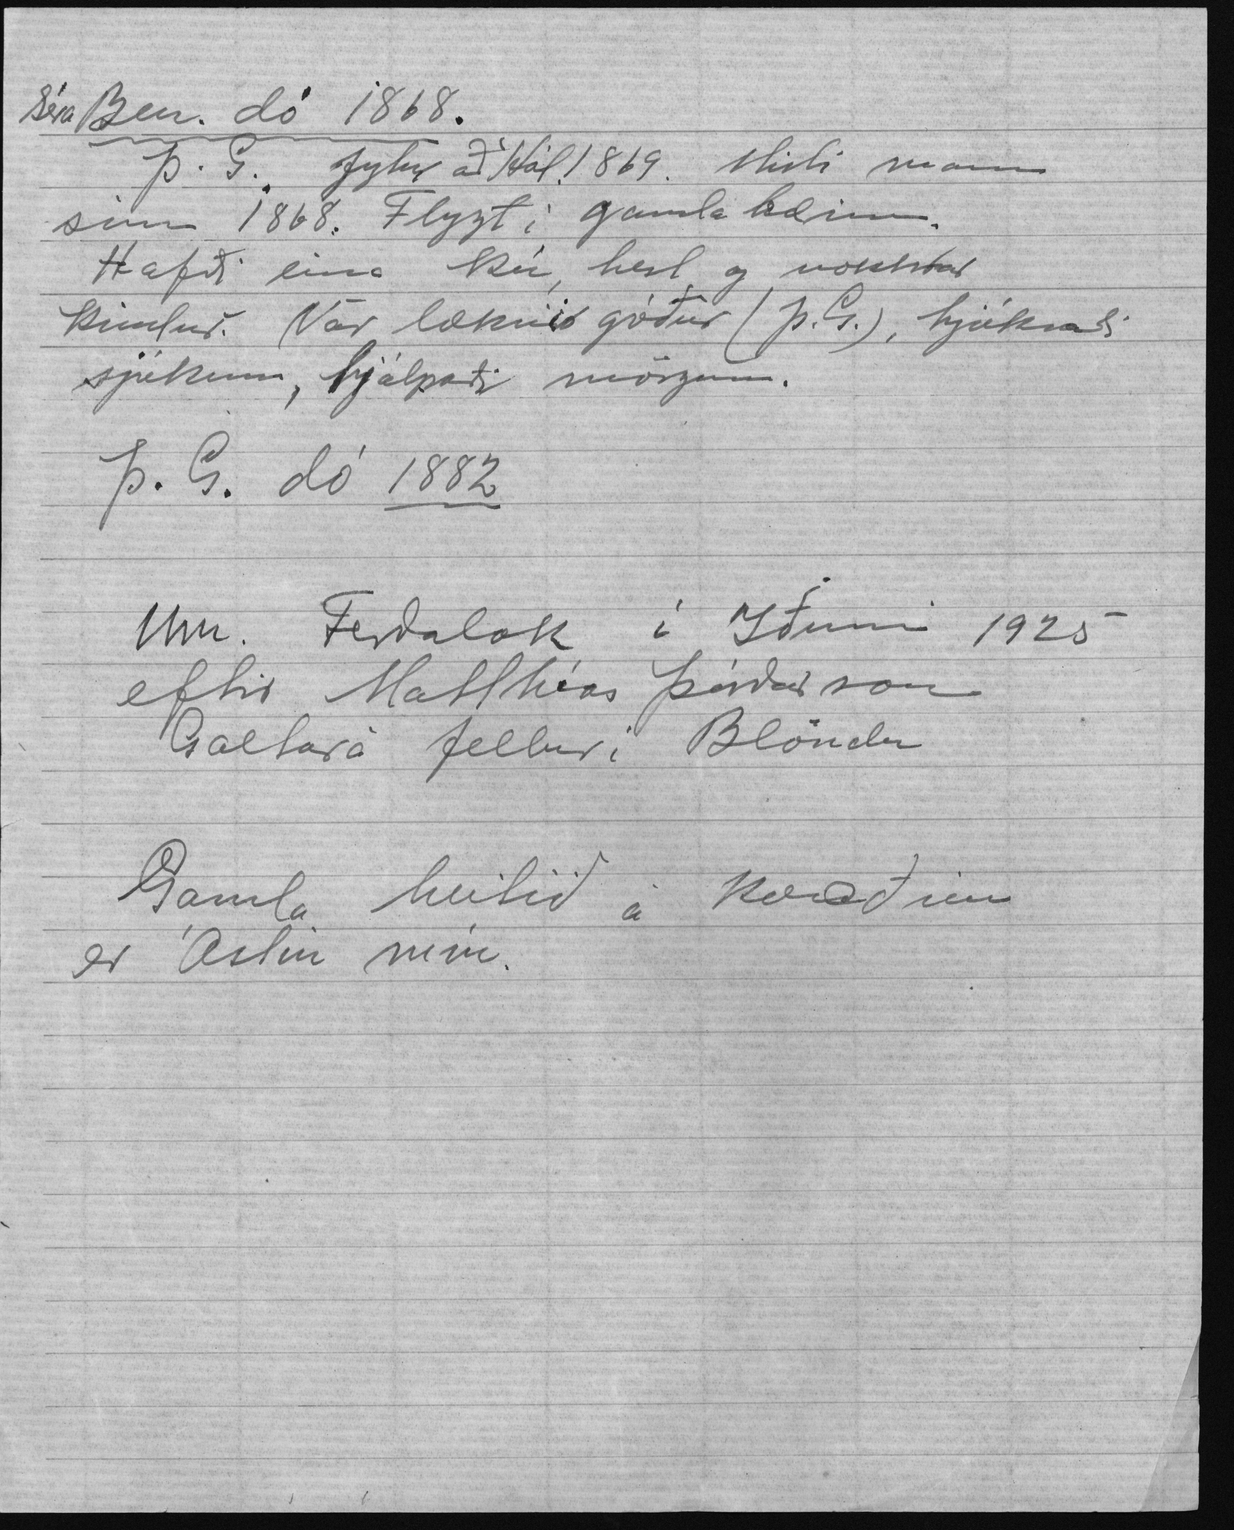 Séra Ben. dó 1868.
Þ. G. flytur að Hól. 1869. Misti mann
sinn 1868. Flyzt í gamla bæinn.
Hafði eina kú, hest og nokkrar
kindur. Var læknir góður (Þ.G.), hjúkraði
sjúkum, hjálpaði mörgum.
Þ. G. dó 1882
Um. Ferðalok í Iðunni 1925
eftir Matthías Þórðarson
Galtará fellur í Blöndu
Gamla heitið á kvæðinu
er Ástin mín.